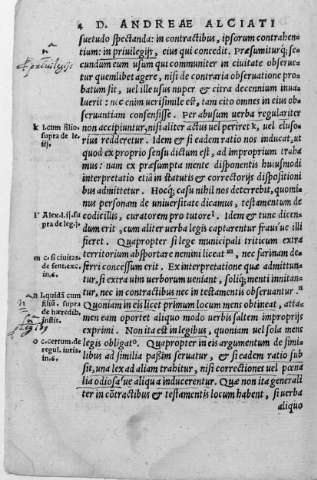 4 D. ANDREAE ALCIATI
suetudo spectanda: in contractibus, ipsorum contrahen-
tium: in priuilegijs, eius qui concedit. Præsumiturq; se-
cundùm eum usum qui communiter in ciuitate obserua-
tur quemlibet agere, nisi de contraria obseruatione pro-
batum sit, uel illius usus nuper & citra decennium inua-
luerit: nec enim uerisimile est, tam cito omnes in eius ob-
seruantiam consensisse. Per abusum uerba regulariter
non accipiuntur, nisi aliter actus uel periret k, uel eluso-
rius redderetur. Idem & si eadem ratio nos inducat, ut
quod ex proprio sensu dictum est, ad improprium traha-
mus: nam ex præsumpta mente disponentis huiusmodi
interpretatio etiã in statutis & correctorijs dispositioni
bus admittetur. Hocq; casu nihil nos deterrebit, quomi-
nus personam de uniuersitate dicamus, testamentum de
codicillis, curatorem pro tutore l. Idem & tunc dicen-
dum erit, cum aliter uerba legis captarentur fraui ue illi
fieret. Quapropter si lege municipali triticum extra
territorium absportare nemini liceat m, nec farinam de-
ferri concessum erit. Ex interpretatione quæ admittun-
tur, si extra uim uerborum ueniant, soliq; menti innitan-
tur, nec in contractibus nec in testamentis obseruantur n
Quoniam in eis licet primum locum mens obtineat, atta-
men eam oportet aliquo modo uerbis saltem improprijs
exprimi. Non ita est in legibus, quoniam uel sola mens
legis obligat o. Quapropter in eis argumentum de simi-
libus ad similia passim seruatur, & si eadem ratio sub
sit, una lex ad aliam trahitur, nisi correctiones uel pœna
lia odiosa'ue aliqua inducerentur. Quæ non ita generali
ter in cõtractibus & testamentis locum habent, si uerba
aliquo
k l.cum filio.
supra de le-
l Alex.l.ij. su
pra de leg.j.
m c. si ciuitas
de sent. exc.
in.6.
n l. quidã cum
filiũ. supra
de hæredib.
instit.
o c. certum. de
regul. iuris.
in.6.